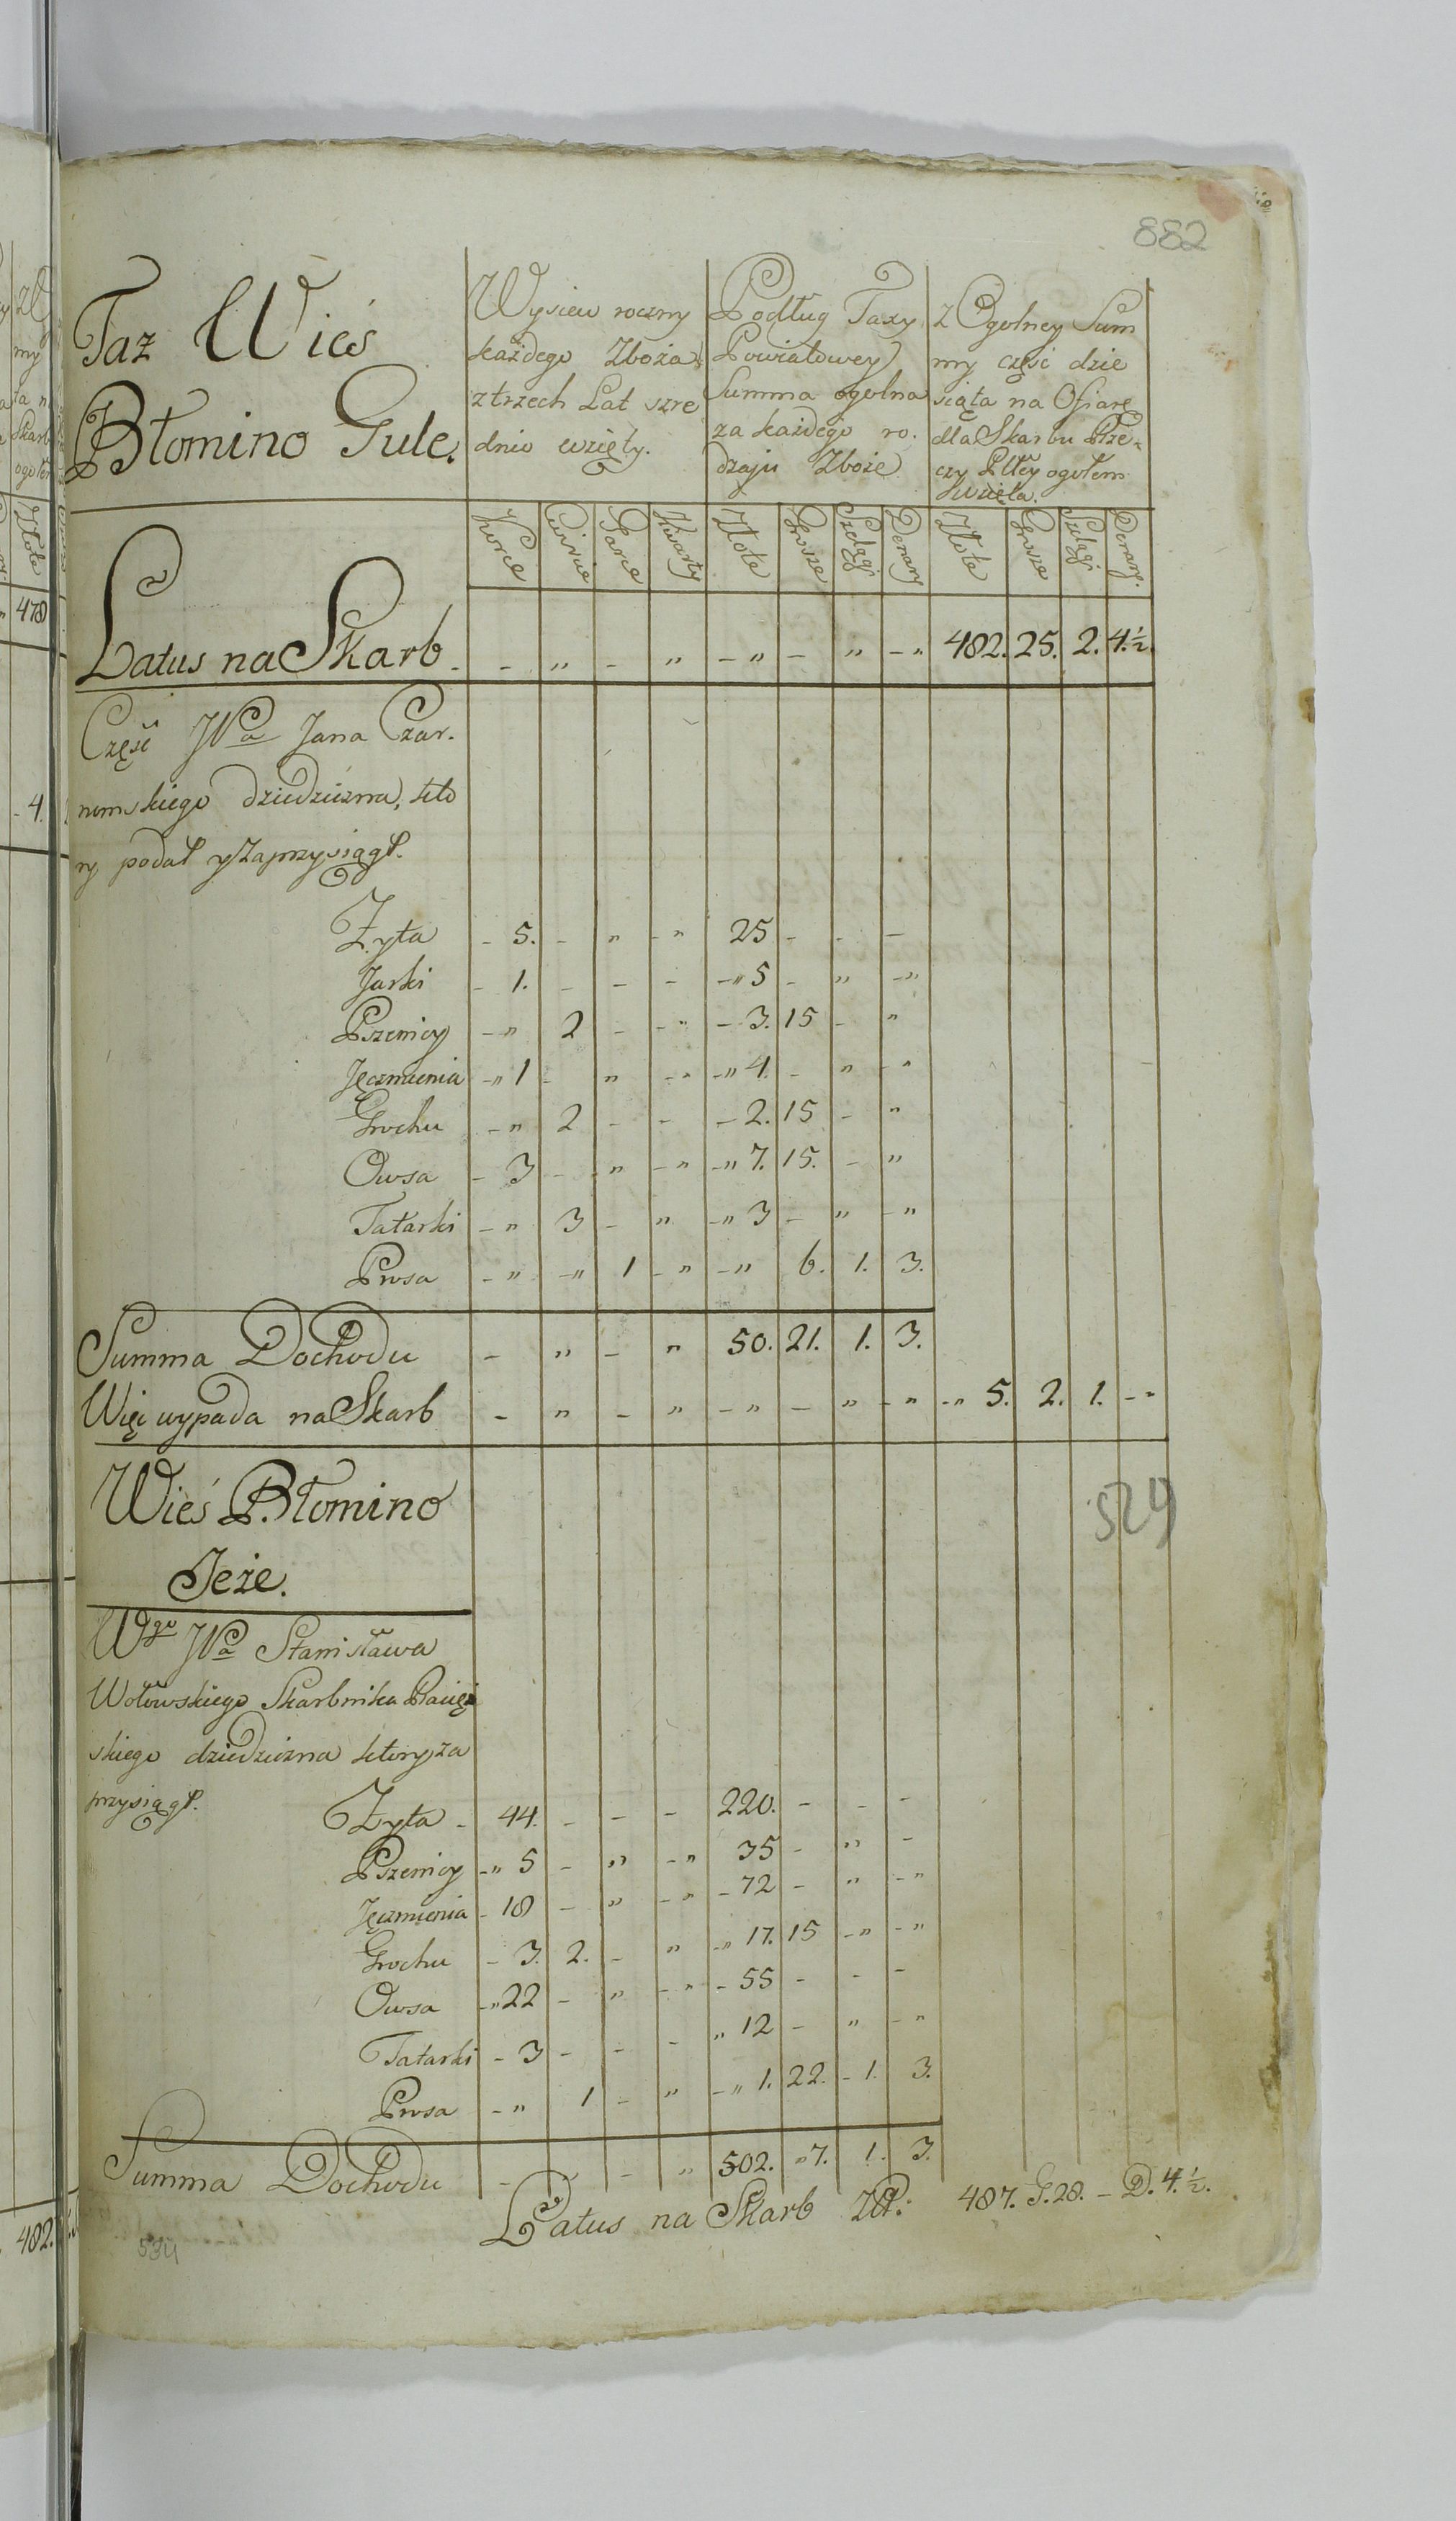 882
Taz Wieś
Błomino Gule.
Wysiew roczny
każdego Zboża
z trzech Lat szre
dnio wzięty.
Podług Taxy
Powiatowey
Summa ogolna
za każdego ro.
dzaju Zboże
z Ogolney Sum
my częsć dzie
siąta na Ofiarę
dla Skarbu Rze-
czy Pltey ogołem
wzięta.
Korce Cwircie Garce Kwarty Złote Grosze Szelągi Denary Złote Grosze Szelągi Denary.
Latus na Skarb - - " - " - " - " - " 482. 25. 2. 4.½.
Częsć JPa Jana Czar.
nomskiego dziedziczna, kto
ry podał y zaprzysiągł.
Żyta - 5. - " - " 25 - - -
Jarki - 1. - - - - " 5 - " - "
Pszenicy - " 2 - - " - 3. 15 - "
Jęczmienia - " 1 - " - " - " 4. - " - "
Grochu - " 2 - - - 2. 15 - "
Owsa - 3 - " - " - " 7. 15. - "
Tatarki - " 3 - " - " 3 - " - "
Prosa - " - " 1 - " - " 6. 1. 3.
Summa Dochodu - " - " 50. 21. 1. 3.
Więc wypada na Skarb - " - " - " - " - " - " 5. 2. 1. - "
Wieś Błomino
Jeże.
529
Wgo JPa Stanisława
Wołowskiego Skarbnika
skiego dziedziczna ktory za
przysiągł.
Żyta - 44. - - - 220. - - -
Pszenicy - " 5 - " - " 35 - " -
Jęczmienia - 18 - " - " - 72 - " - "
Grochu - 3. 2. - " - " 17. 15 - " - "
Owsa - " 22 - " - " - 55 - - -
Tatarki - 3 - - - " 12 - " - "
Prosa - " 1 - " - " 1. 22. - 1. 3.
Summa Dochodu - - " 502. " 7. 1. 3.
Latus na Skarb Złł: 487. G. 28. - D. 4.½.
534
478
4.
482.